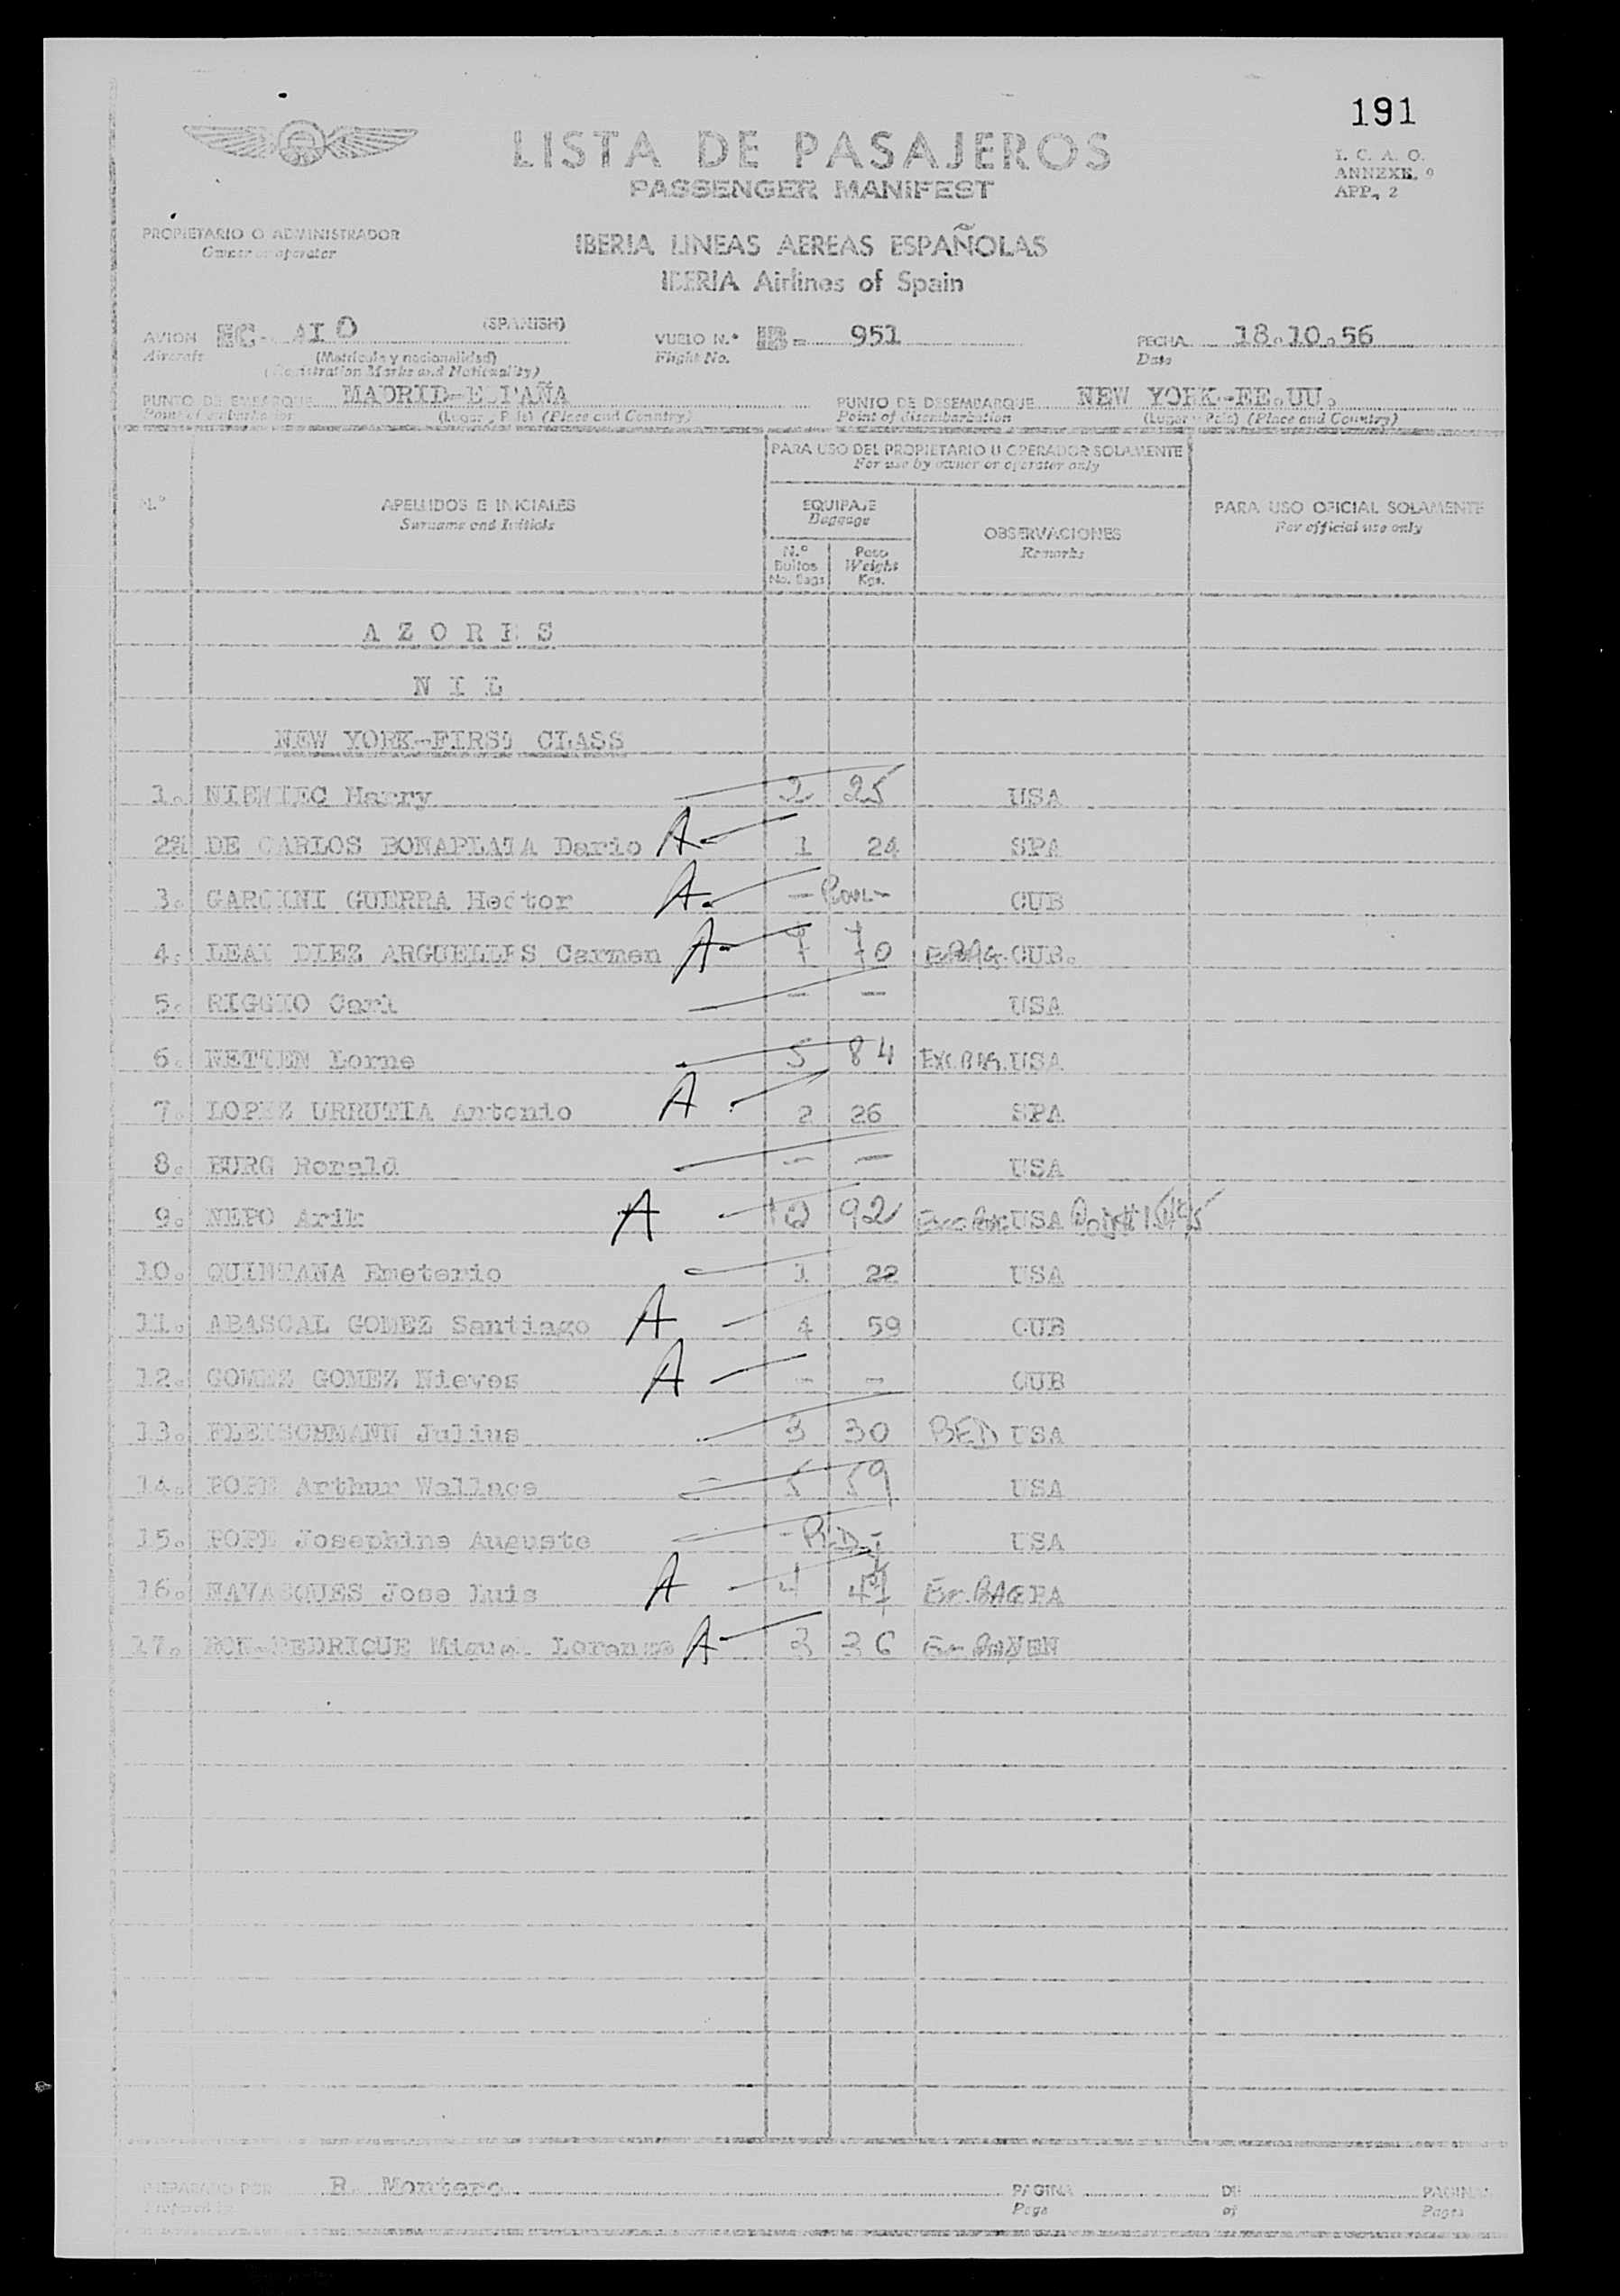 191
LISTA DE PASAJEROS
PASSENGER MANIFEST
I. C. A. O.
ANNEXE. 9
APP., 2
PROPIETARIO O ADMINISTRADOR
Owner or operator
IBERIA LINEAS AEREAS ESPAÑOLAS
IBERIA Airlines of Spain
AVION EC- AIO (SPANISH)
Aircraft (Matrícula y nacionalidad)
(Registration Marks and Nationality)
VUELO N.º IB- 951
Flight No.
FECHA 18.10.56
Date
PUNTO DE EMBARQUE MADRID-ESPAÑA
Point of embarkation (Lugar y País) (Place and Country)
PUNTO DE DESEMBARQUE NEW YORK-EE.UU.
Point of disembarkation (Lugar y País) (Place and Country)
PARA USO DEL PROPIETARIO U OPERADOR SOLAMENTE
For use by owner or operator only
N.º
APELLIDOS E INICIALES
Surname and Initials
EQUIPAJE
Baggage
N.º Bultos No. Bags
Peso Weight Kgs.
OBSERVACIONES
Remarks
PARA USO OFICIAL SOLAMENTE
For official use only
AZORES
NIL
NEW YORK-FIRST CLASS
1. Harry 2 25 USA
2 DE CARLOS BONAPLATA Dario A 1 24 SPA
3. GARCINI GUERRA Hector A CUB
4. LEAL DIEZ ARGUELLES Carmen A 7 70 CUB.
5. RIGGIO Carl - - USA
6. NETTEN Lorne 5 84 EXC.BAG. USA
7. LOPEZ URRUTIA Antonio A 2 26 SPA
8. BURG - - USA
9. A 92 USA
10. QUINTANA Emeterio 1 22 USA
11. ABASCAL GOMEZ Santiago A 4 59 CUB
12. GOMEZ GOMEZ Nieves A - - CUB
13. FLEISCHMANN Julius 3 30 BED USA
14. POPE Arthur Wallace 5 59 USA
15. POPE Josephine Auguste USA
16. NAVASQUES Jose Luis A 4
17. Miguel Lorenzo A 3 36 VEN
PREPARADO POR
Prepared by
Montero
PAGINA DE PAGINAS
Page of Pages